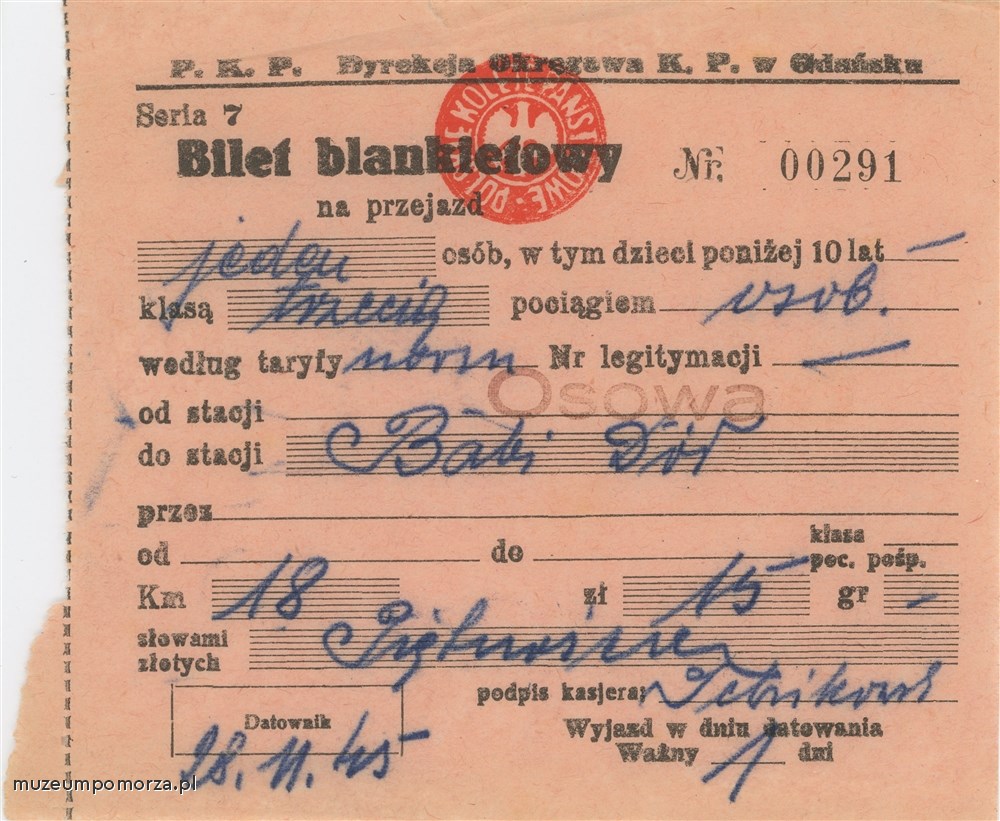 P. K. P. Dyrekcja Okręgowa K. P. w Gdańsku
POLSKIE KOLEJE PAŃSTWOWE
Seria 7
Bilet blankietowy Nr. 00291
na przejazd
jeden osób, w tym dzieci poniżej 10 lat —
klasą trzecią pociągiem osob.
według taryfy norm Nr legitymacji —
Osowa
od stacji
do stacji Babi Dół
przez
od do klasa
poc. pośp.
Km 18 zł 15 gr —
słowami
złotych Piętnaście
podpis kasjera:
Datownik Wyjazd w dniu datowania
28.11.45 Ważny 1 dni
muzeumpomorza.pl